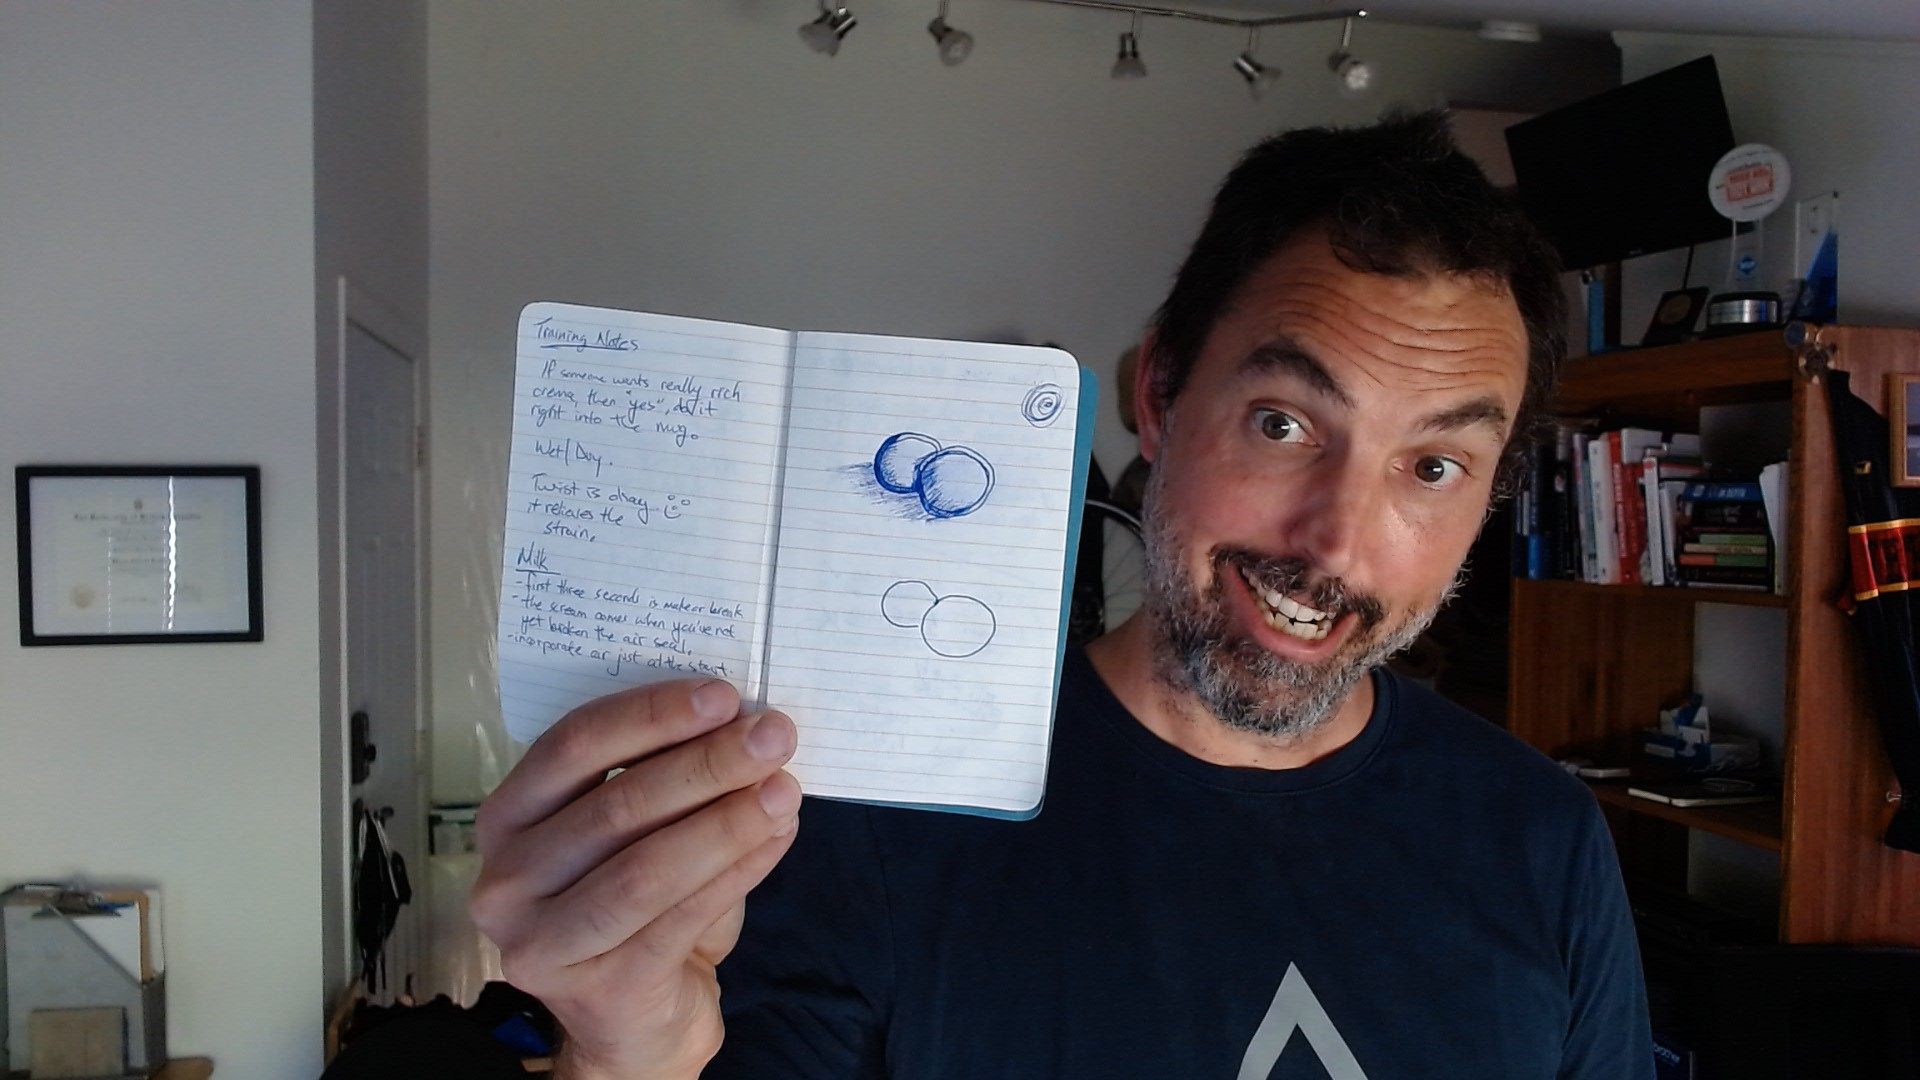 Training Notes
If someone wants really rich
crema, then "yes", do it
right into the mug.
Wet/Dry.
Twist is okay
it relieves the
strain.
Milk
- first three seconds is make or break
- the scream comes when you've not
yet broken the air seal.
- incorporate air just at the start.